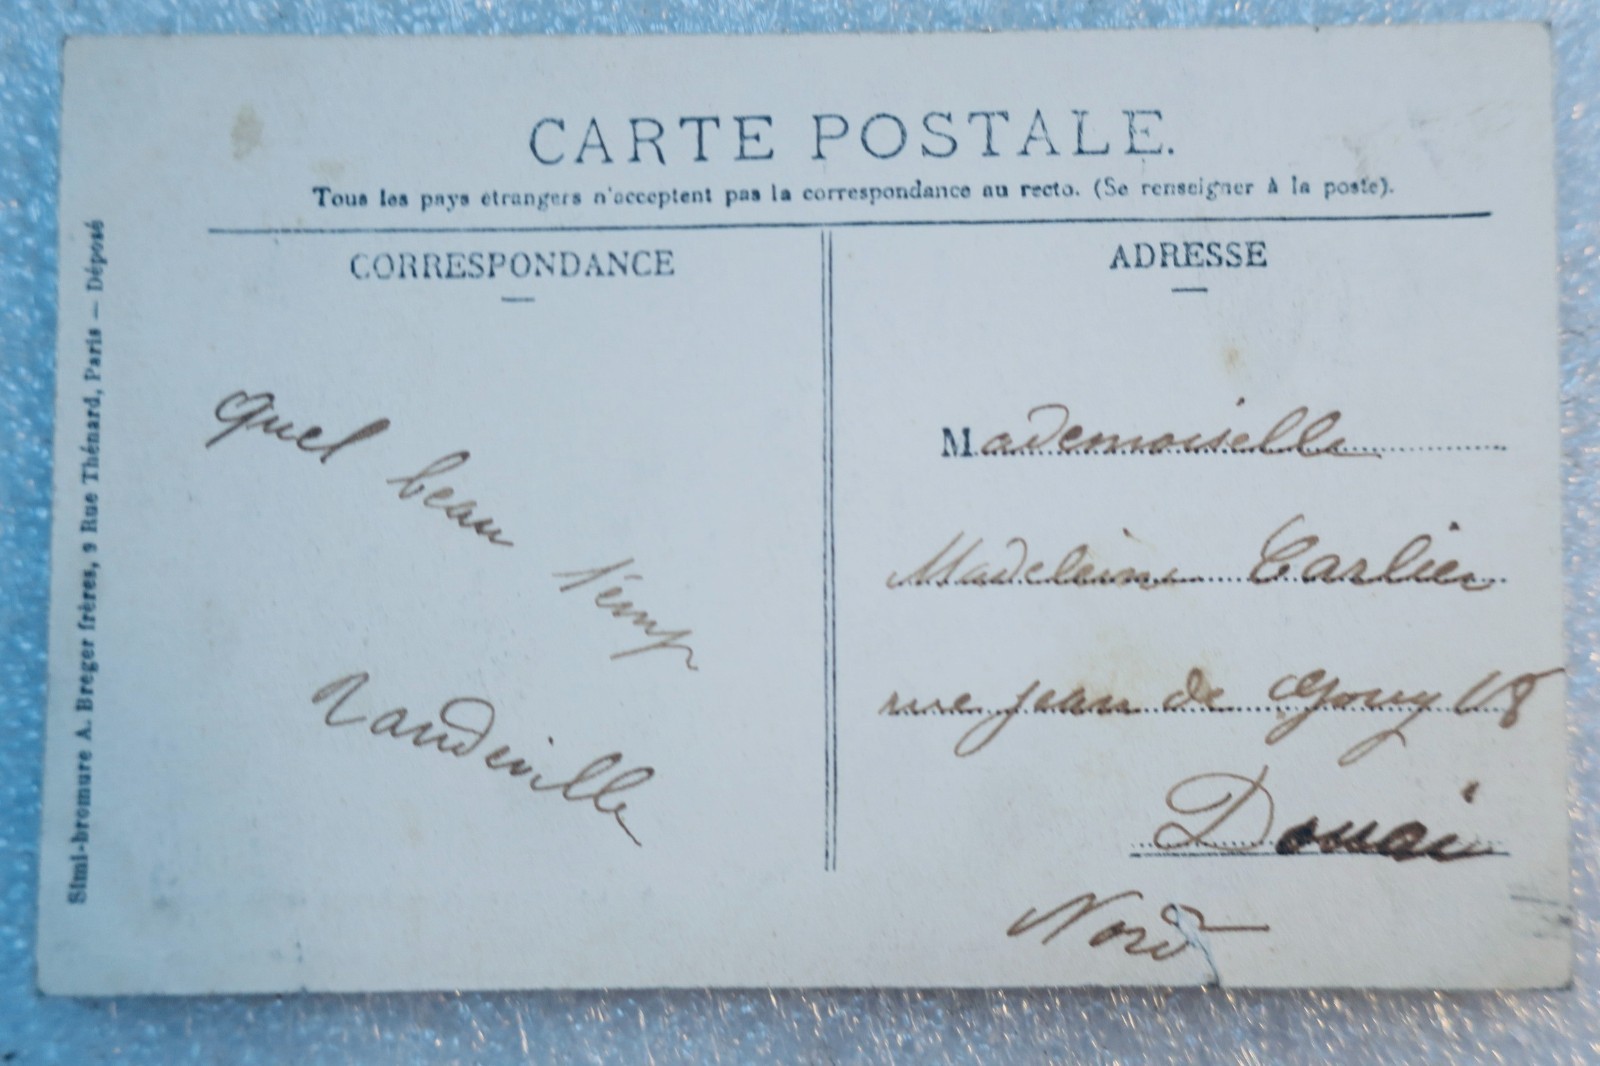 CARTE POSTALE.
Tous les pays étrangers n'acceptent pas la correspondance au recto. (Se renseigner à la poste).
CORRESPONDANCE
quel beau
temp
Vandeville
ADRESSE
Mademoiselle
Madeleine Carlier
rue jean de Gouy 118
Douai
Nord
Simi-bromure A. Breger frères, 9 Rue Thénard, Paris — Déposé